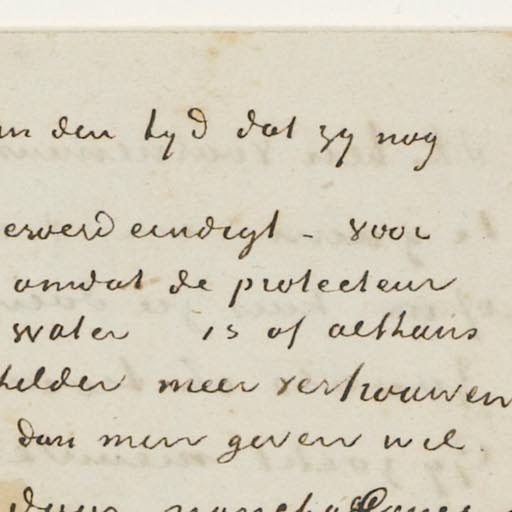 den tyd dat zy nog
eindigt - voor
omdat de protecteur
water is of althans
helder meer vertrouwen
dan men geven wil.
door nonchalance